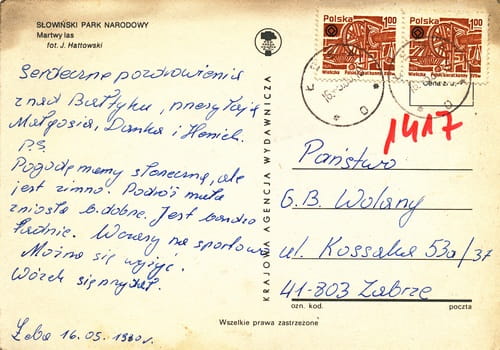 SŁOWIŃSKI PARK NARODOWY
Martwy las
fot. J. Hattowski
Serdeczne pozdrowienia
znad Bałtyku, przesyłają
Małgosia, Danka i Henich.
P.S.
Pogodę mamy słoneczną, ale
jest zimno. Podróż mała
zniosła b. dobrze. Jest bardzo
ładnie. Wczasy na sportowo
Można się wyżyć.
Wózek się przydał.
Łeba 16.05. 1980 r.
KRAJOWA AGENCJA WYDAWNICZA
Wszelkie prawa zastrzeżone
Polska 1,00
Wieliczka
Polska 1,00
Wieliczka
1417
Państwo
G.B. Wolany
ul. Kossaka 53a/37
41-803 Zabrze
ozn. kod. poczta